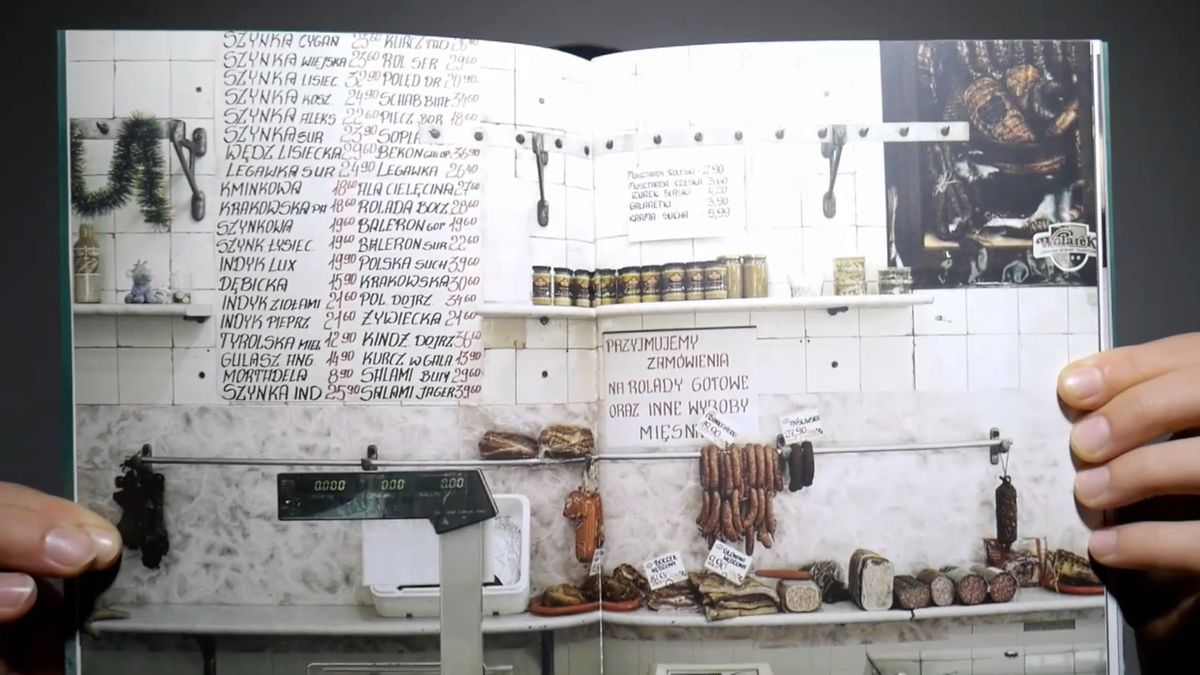 SZYNKA CYGAN 23⁶⁰ KURCZ TRAD
SZYNKA WIEJSKA 23⁶⁰ ROL SER 29⁶⁰
SZYNKA LISIEC 32⁹⁰ POLĘD DR
SZYNKA KOSZ. 24⁹⁰ SCHAB BIAŁ 34⁶⁰
SZYNKA ALEKS 22⁶⁰ PIECZ BOR 18⁶⁰
SZYNKA SUR 23⁹⁰ SOPL
WĘDZ LISIECKA 29⁶⁰ BEKON GALOP 36⁹⁰
LEGAWKA SUR 24⁹⁰ LEGAWKA 26⁴⁰
KMINKOWA 18⁶⁰ ALA CIELĘCINA 27⁶⁰
KRAKOWSKA PA 18⁶⁰ ROLADA BOCZ 28⁶⁰
SZYNKOWA 19⁶⁰ BALERON GOT 19⁶⁰
SZYNK ŁYSIEC 19⁶⁰ BALERON SUR 22⁶⁰
INDYK LUX 19⁹⁰ POLSKA SUCH 39⁶⁰
DĘBICKA 15⁹⁰ KRAKOWSKA 30⁶⁰
INDYK ZIOŁAMI 21⁶⁰ POL DOJRZ 34⁶⁰
INDYK PIEPRZ 21⁶⁰ ŻYWIECKA 21⁶⁰
TYROLSKA MIEL 12⁹⁰ KINDZ DOJRZ 36⁶⁰
GULASZ ANG. 14⁹⁰ KURCZ W GALA 13⁹⁰
MORTADELA 8⁹⁰ SALAMI BUN 29⁶⁰
SZYNKA IND 25⁹⁰ SALAMI JAGER 39⁶⁰
MUSZTARDY ROLESKI 2,90
MUSZTARDA CZESKA 3,60
ŻUREK ŚLĄSKI 4,20
GALARETKI 3,90
KARMA SUCHA 5,99
Wolarek
PRZYJMUJEMY
ZAMÓWIENIA
NA ROLADY GOTOWE
ORAZ INNE WYROBY
MIĘSN
0.000 0.00 0.00
19,00
27,90
BOCZEK
WĘDZONY
SŁONINA
WĘDZONA
9,90